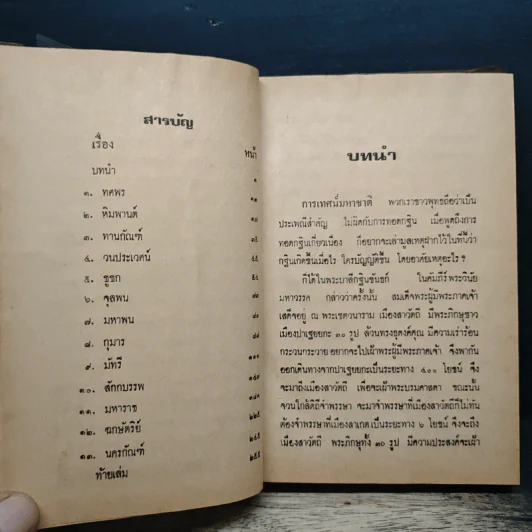 สารบัญ
เรื่อง หน้า
บทนำ ๑
๑. ทศพร ๑๑
๒. หิมพานต์
๓. ทานกัณฑ์
๔. วนประเวศน์
๕. ชูชก
๖. จุลพน
๗. มหาพน
๘. กุมาร
๙. มัทรี
๑๐. สักกบรรพ
๑๑. มหาราช
๑๒. ฉกษัตริย์
๑๓. นครกัณฑ์
ท้ายเล่ม
บทนำ
การเทศน์มหาชาติ พวกเราชาวพุทธถือว่าเป็น
ประเพณีสำคัญ ไม่ผิดกับการทอดกฐิน เมื่อพูดถึงการ
ทอดกฐินเกี่ยวเนื่อง ก็อยากจะเล่ามูลเหตุฝากไว้ในที่นี้ว่า
กฐินเกิดขึ้นเมื่อไร ใครบัญญัติขึ้น โดยอาศัยเหตุอะไร ?
ก็ได้ในพระบาลีกฐินขันธก์ ในคัมภีร์พระวินัย
มหาวรรค กล่าวว่าครั้งนั้น สมเด็จพระผู้มีพระภาคเจ้า
เสด็จอยู่ ณ พระเชตวนาราม เมืองสาวัตถี มีพระภิกษุชาว
เมืองปาเฐยยกะ ๓๐ รูป ล้วนทรงธุดงค์คุณ มีความเร่าร้อน
กระวนกระวาย อยากจะไปเฝ้าพระผู้มีพระภาคเจ้า จึงพากัน
ออกเดินทางจากปาเฐยยกะเป็นระยะทาง ๕๐๐ โยชน์ จึง
จะมาถึงเมืองสาวัตถี เพื่อจะเฝ้าพระบรมศาสดา ขณะนั้น
จวนใกล้ดิถีจำพรรษา จะมาจำพรรษาที่เมืองสาวัตถีก็ไม่ทัน
ต้องจำพรรษาที่เมืองสาเกตเป็นระยะทาง ๖ โยชน์ จึงจะถึง
เมืองสาวัตถี พระภิกษุทั้ง ๓๐ รูป มีความประสงค์จะเฝ้า